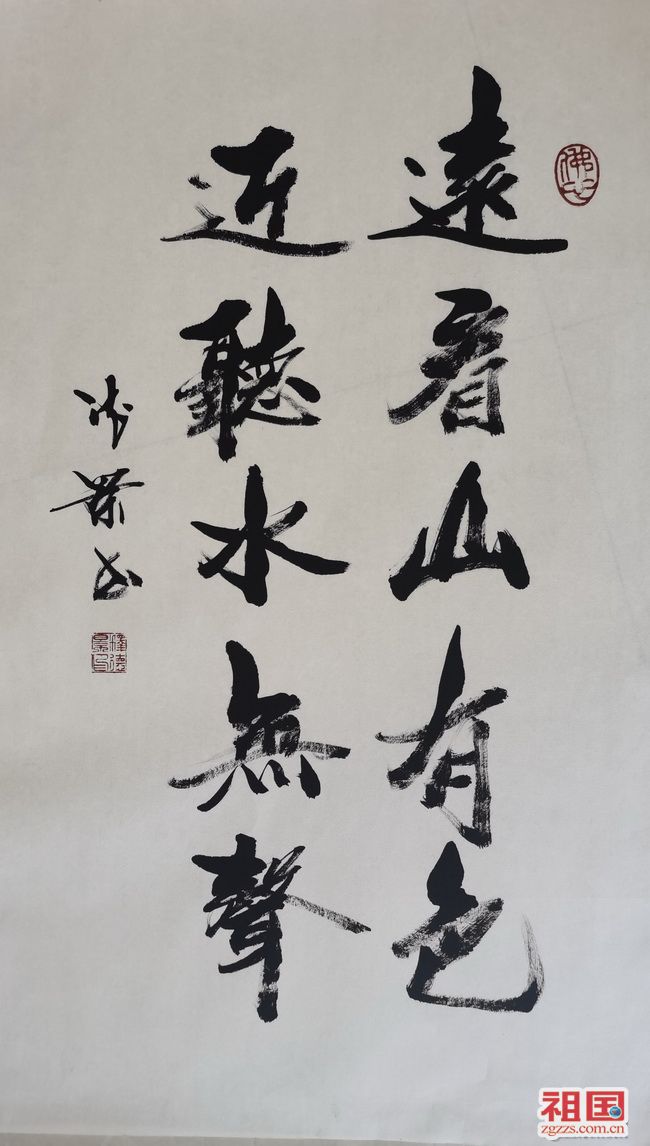 遠看山有色
近聽水無聲
佛心
祖国
zgzzs.com.cn